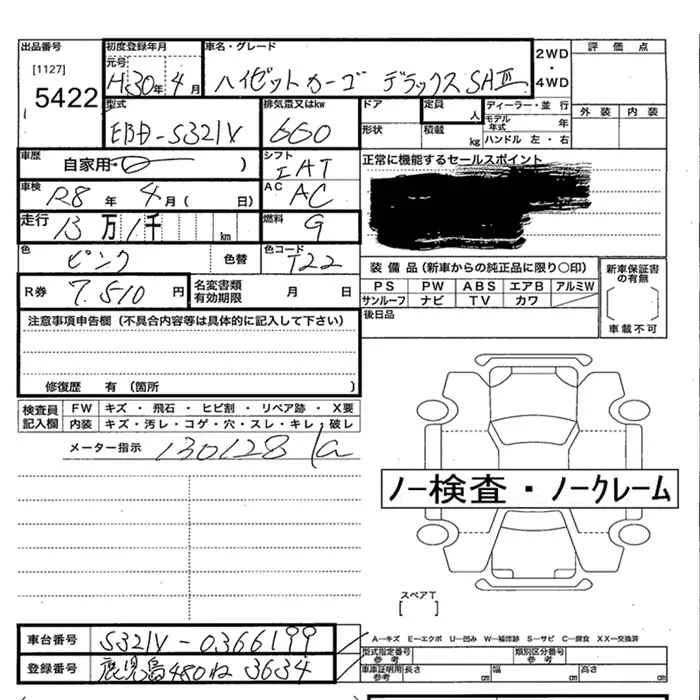 出品番号 初度登録年月 車名・グレード 2WD・4WD 評価点
[1127] 元号
5422 H30年 4月 ハイゼットカーゴ デラックスSAⅢ
型式 排気量又はkw ドア 定員 人 ディーラー・並行 外装 内装
EBD-S321V 660 形状 積載 kg モデル年式 年
ハンドル 左・右
車歴 自家用・ ) シフト IAT 正常に機能するセールスポイント
車検 R8年 4月( 日) AC AC
走行 13万1千 km 燃料 G
色 ピンク 色替 色コード T22
装備品(新車からの純正品に限り〇印) 新車保証書の有無
R券 7,510円 名変書類有効期限 月 日 PS PW ABS エアB アルミW
サンルーフ ナビ TV カワ
注意事項申告欄(不具合内容等は具体的に記入して下さい) 後日品 車載不可
修復歴 有(箇所 )
検査員記入欄 FW キズ・飛石・ヒビ割・リペア跡・X要
内装 キズ・汚レ・コゲ・穴・スレ・キレ・破レ
メーター指示 130128
ノー検査・ノークレーム
スペアT
[ ]
車台番号 S321V-0366199 A―キズ E―エクボ U―凹み W―補修跡 S―サビ C―腐食 XX―交換済
型式指定番号 参考 類別区分番号 参考
登録番号 鹿児島480ね3634 車庫証明用 参考 長さ cm 幅 cm 高さ cm